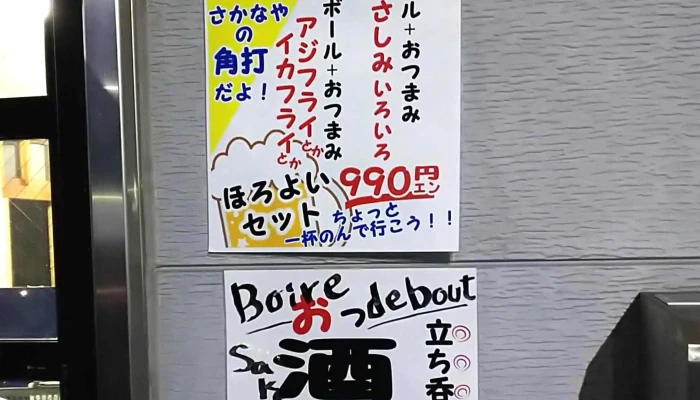 ル+おつまみ
さしみいろいろ
ボール+おつまみ
アジフライとか
イカフライとか
さかなや
の
角打
だよ!
990円
エン
ほろよい
セット
ちょっと
一杯のんで行こう!!
Boire
debout
おっ
酒
Sa
立ち呑